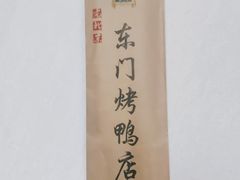 东门烤鸭店